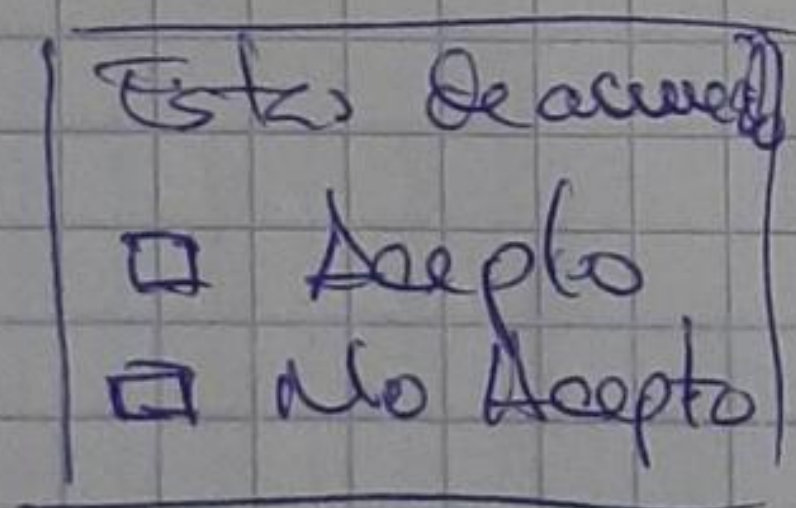 Estas De acuerdo
□ Acepto
□ No Acepto